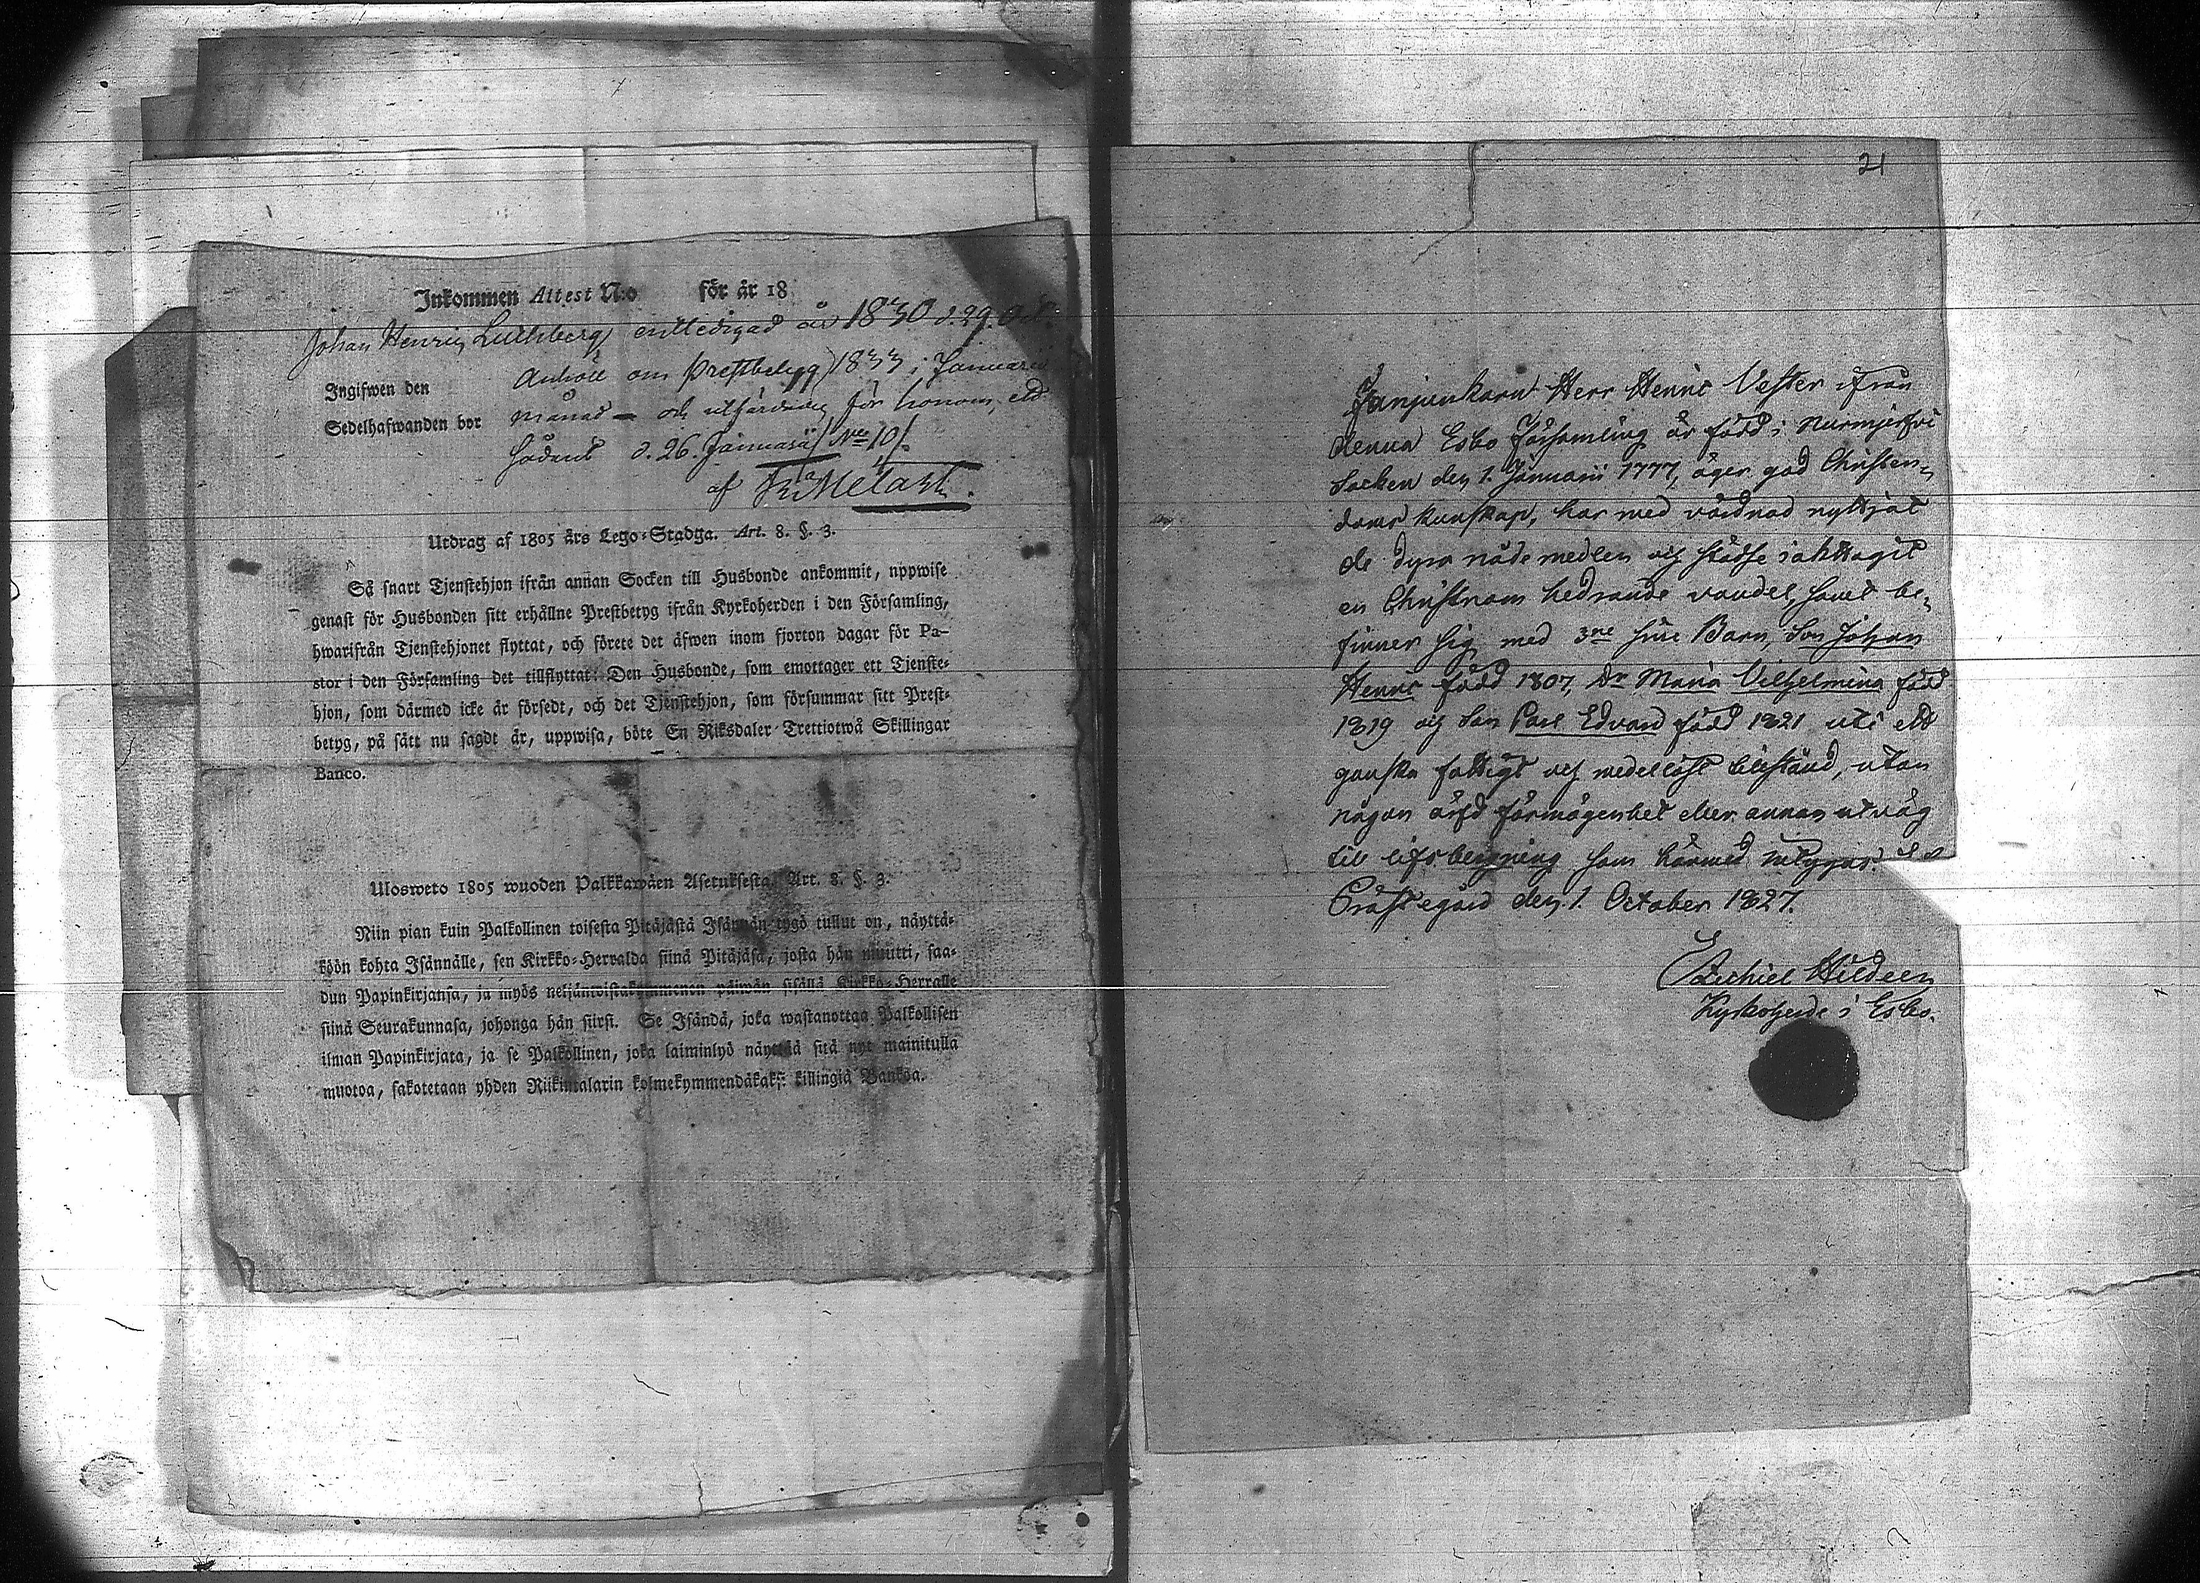 Inkommen Attest N:o för år 18
Johan Henric Luthberg entledigad år 1830 d. 29. Oct.
Anhöll om prestbetyg 1833 i Januarii
Ingifwen den
månad och utfärdades för honom, ett
Sedelhafwanden bor
sådant d. 26. Januarii No 10
af
Utdrag af 1805 års Lego-Stadga. Art. 8. §. 3.
Så snart Tjenstehjon ifrån annan Socken till Husbonde ankommit, uppwise
genast för Husbonden sitt erhållne Prestbetyg ifrån Kyrkoherden i den Församling,
hwarifrån Tjenstehjonet flyttat, och förete det äfwen inom fjorton dagar för Pa-
stor i den Församling det tillflyttat. Den Husbonde, som emottager ett Tjenste-
hjon, som därmed icke är försedt, och det Tjenstehjon, som försummar sitt Prest-
betyg, på sätt nu sagdt är, uppwisa, böte En Riksdaler Trettiotwå Skillingar
Banco.
Ulosweto 1805 wuoden Palkkawäen Asetuksesta. Art. 8. §. 3.
Niin pian kuin Palkollinen toisesta Pitäjästä Isännän tygö tullut on, näyttä-
köön kohta Isännälle, sen Kirkko-Herralda siinä Pitäjäsä, josta hän muutti, saa-
dun Papinkirjansa, ja myös neljäntoistakymmenen päiwän sisällä Kirkko-Herralle
siinä Seurakunnasa, johonga hän siirsi. Se Isändä, joka wastanottaa Palkollisen
ilman Papinkirjata, ja se Palkollinen, joka laiminlyö näyttää sitä nyt mainitulla
muotoa, sakotetaan yhden Riikintalarin kolmekymmendäkaksi killingiä Bankoa.
21
Fanjunkaren Herr Henric Vester ifrån
denna Esbo församling är född i Nurmijerfvi
Socken den 1. Januarii 1777, äger god Christen-
doms kunskap, har med vördnad nyttjat
de dyra nådemedlen och städse iakttagit
en Christnom hedrande vandel, samt be-
finner sig med 3ne sine Barn, Son Johan
Henric född 1807, Dr Maria Vilhelmina född
1819 och Son Carl Edvard född 1821 uti ett
ganska fattigt och medellöst tillstånd, utan
någon ärfd förmögenhet eller annan utväg
till lifsbergning som härmed intygas.
Prästegård den 1. October 1827.
Ezechiel Hildeen
Kyrkoherde i Esbo.